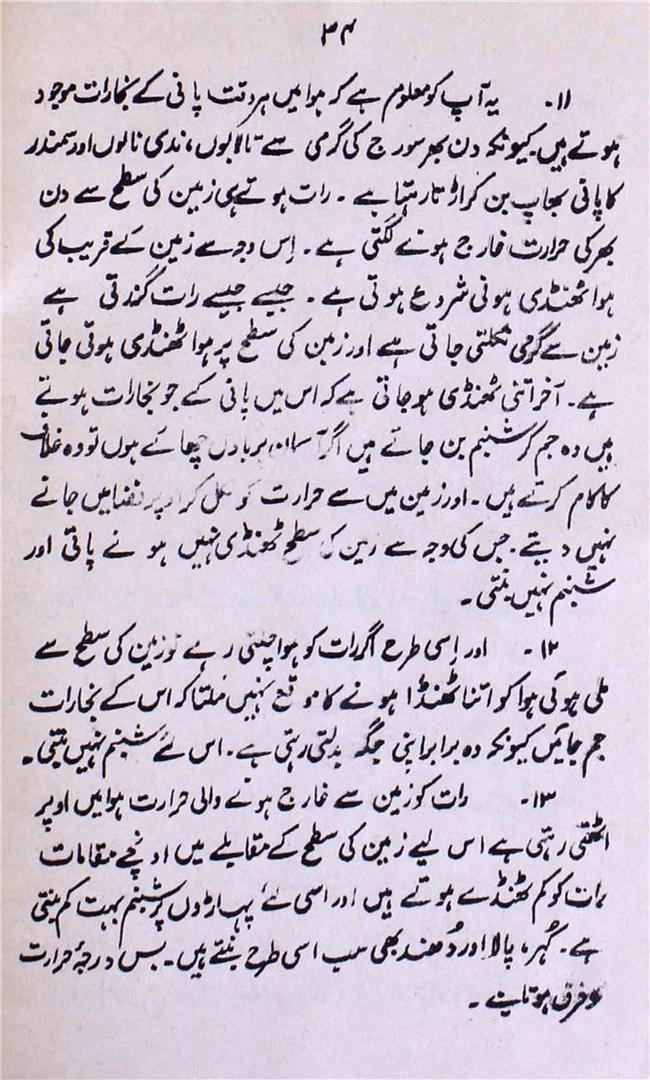 ۳۴
۱۱۔ یہ آپ کو معلوم ہے کہ ہوا میں ہر وقت پانی کے بخارات موجود
ہوتے ہیں۔ کیونکہ دن بھر سورج کی گرمی سے تالابوں، ندی نالوں اور سمندر
کا پانی بھاپ بن کر اڑتا رہتا ہے۔ رات ہوتے ہی زمین کی سطح سے دن
بھر کی حرارت خارج ہونے لگتی ہے۔ اِس وجہ سے زمین کے قریب کی
ہوا ٹھنڈی ہونی شروع ہوتی ہے۔ جیسے جیسے رات گذرتی ہے
زمین سے گرمی نکلتی جاتی ہے اور زمین کی سطح پر ہوا ٹھنڈی ہوتی جاتی
ہے۔ آخر اتنی ٹھنڈی ہو جاتی ہے کہ اس میں پانی کے جو بخارات ہوتے
ہیں وہ جم کر شبنم بن جاتے ہیں اگر آسمان پر بادل چھائے ہوں تو وہ غلاف
کا کام کرتے ہیں۔ اور زمین میں سے حرارت کو نکل کر اوپر فضا میں جانے
نہیں دیتے۔ جس کی وجہ سے زمین کی سطح ٹھنڈی نہیں ہونے پاتی اور
شبنم نہیں بنتی۔
۱۲۔ اور اِسی طرح اگر رات کو ہوا چلتی رہے تو زمین کی سطح سے
ملی ہوئی ہوا کو اتنا ٹھنڈا ہونے کا موقع نہیں ملتا کہ اس کے بخارات
جم جائیں کیونکہ وہ برابر اپنی جگہ بدلتی رہتی ہے۔ اس لئے شبنم نہیں بنتی۔
۱۳۔ رات کو زمین سے خارج ہونے والی حرارت ہوا میں اوپر
اٹھتی رہتی ہے اس لیے زمین کی سطح کے مقابلے میں اونچے مقامات
رات کو کم ٹھنڈے ہوتے ہیں اور اسی لئے پہاڑوں پر شبنم بہت کم بنتی
ہے۔ کُہر، پالا اور دُھند بھی سب اسی طرح بنتے ہیں۔ بس درجۂ حرارت
کا فرق ہوتا ہے۔